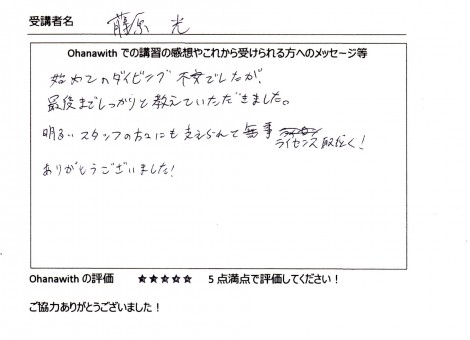 受講者名 藤原 光
Ohanawith での講習の感想やこれから受けられる方へのメッセージ等
始めてのダイビング 不安でしたが、
最後までしっかりと教えていただきました。
明るいスタッフの方々にも支えられて 無事 ライセンス取得!
ありがとうございました!
Ohanawith の評価 ★★★★★ 5 点満点で評価してください!
ご協力ありがとうございました!